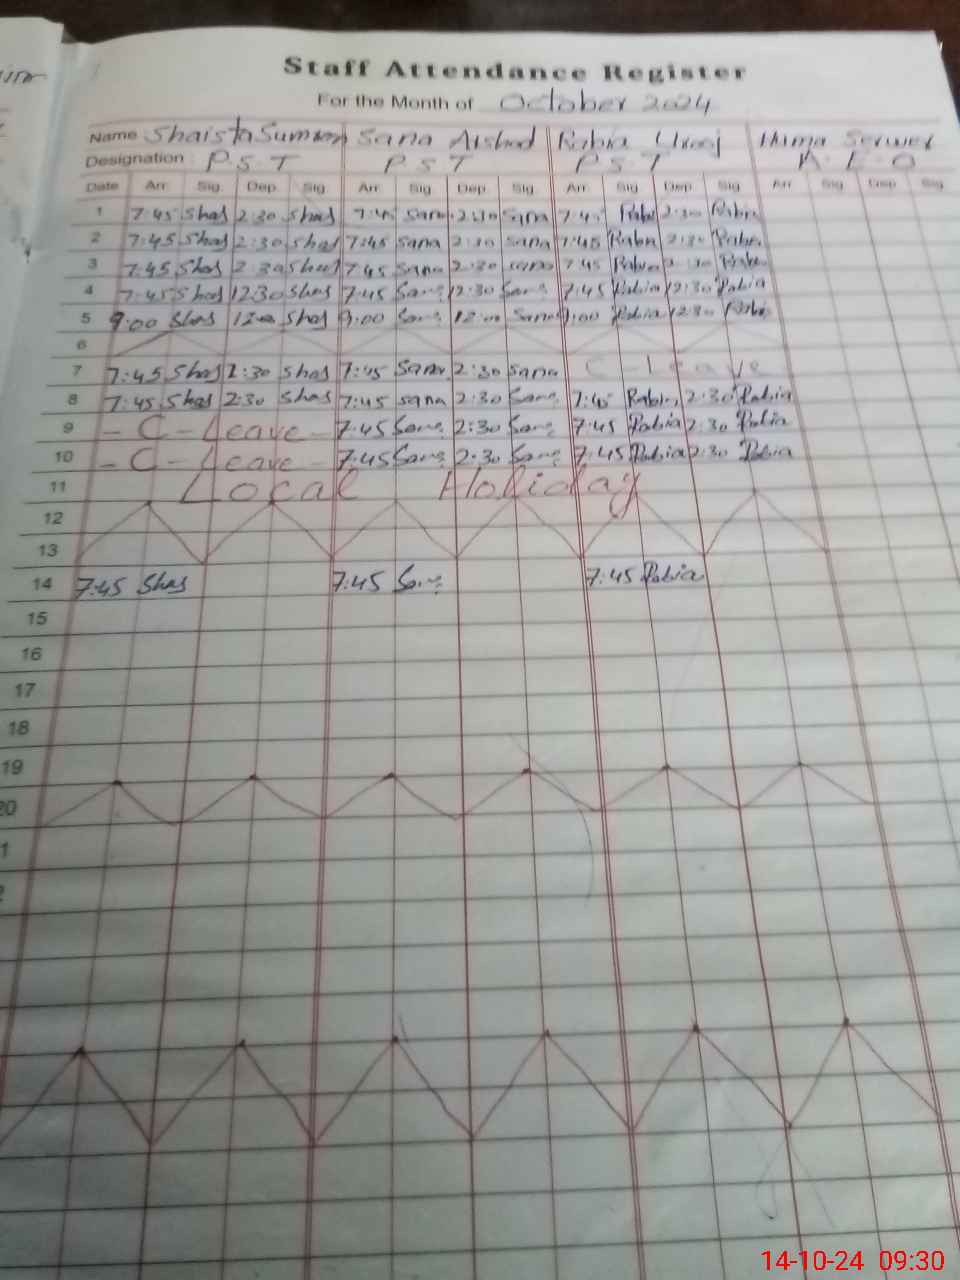 Staff Attendance Register
For the Month of October 2024
Name Shaista Sumren Sana Arshad Rabia Urooj Huma Serwer
Designation P.S.T P.S.T P.S.T A.E.O
Date Arr. Sig. Dep. Sig. Arr. Sig. Dep. Sig. Arr. Sig. Dep. Sig. Arr. Sig. Dep. Sig.
1 7:45 Shas 2:30 Shas 7:45 Sana 2:30 Sana 7:45 Rabia 2:30 Rabia
2 7:45 Shas 2:30 Shas 7:45 Sana 2:30 Sana 7:45 Rabia 2:30 Rabia
3 7:45 Shas 2:30 Shas 7:45 Sana 2:30 Sana 7:45 Rabia 2:30 Rabia
4 7:45 Shas 12:30 Shas 7:45 Sana 12:30 Sana 7:45 Rabia 12:30 Rabia
5 9:00 Shas Shas 9:00 Sana 12:00 Sana 9:00 Rabia 12:30 Rabia
6
7 7:45 Shas 2:30 Shas 7:45 Sana 2:30 Sana C-Leave
8 7:45 Shas 2:30 Shas 7:45 Sana 2:30 Sana 7:45 Rabia 2:30 Rabia
9 - C - Leave - 7:45 Sana 2:30 Sana 7:45 Rabia 2:30 Rabia
10 - C - Leave - 7:45 Sana 2:30 Sana 7:45 Rabia 2:30 Rabia
11 Local Holiday
12
13
14 7:45 Shas 7:45 Sana 7:45 Rabia
15
16
17
18
19
20
1
2
14-10-24 09:30